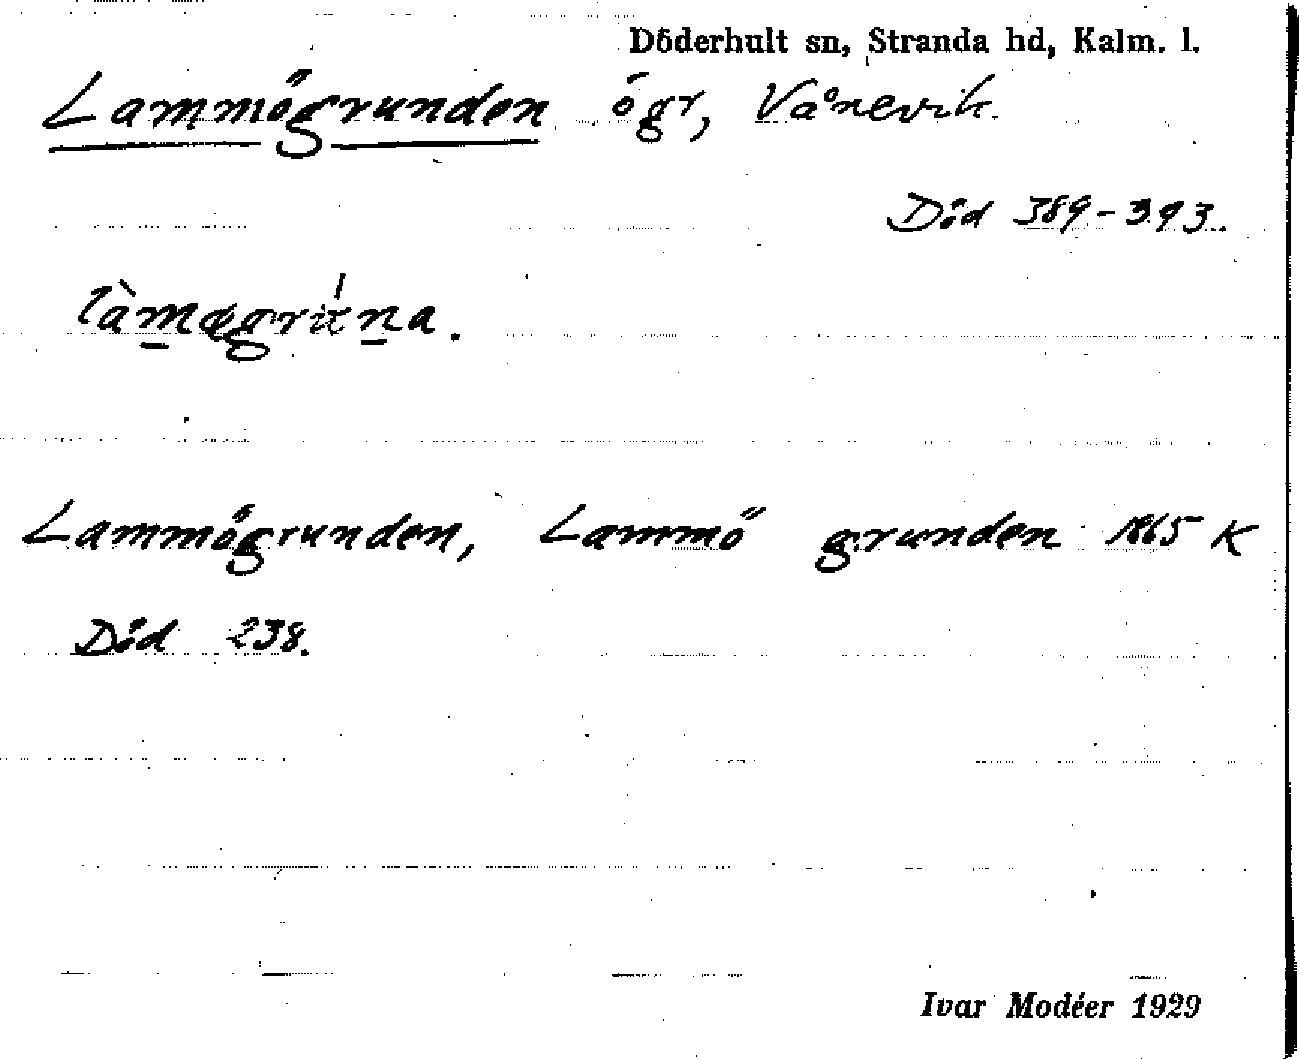 Döderhult sn, Stranda hd, Kalm. l.
Lammögrunden ögr, Vånevik.
Död 389-393.
làmøgrúna.
Lammögrunden, Lammö grunden 1865 K
Död 238.
Ivar Modéer 1929